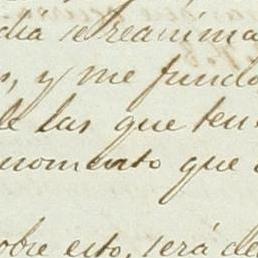 dia se reanima
, y me fundo
de las que ten
momento que
obre esto, será de